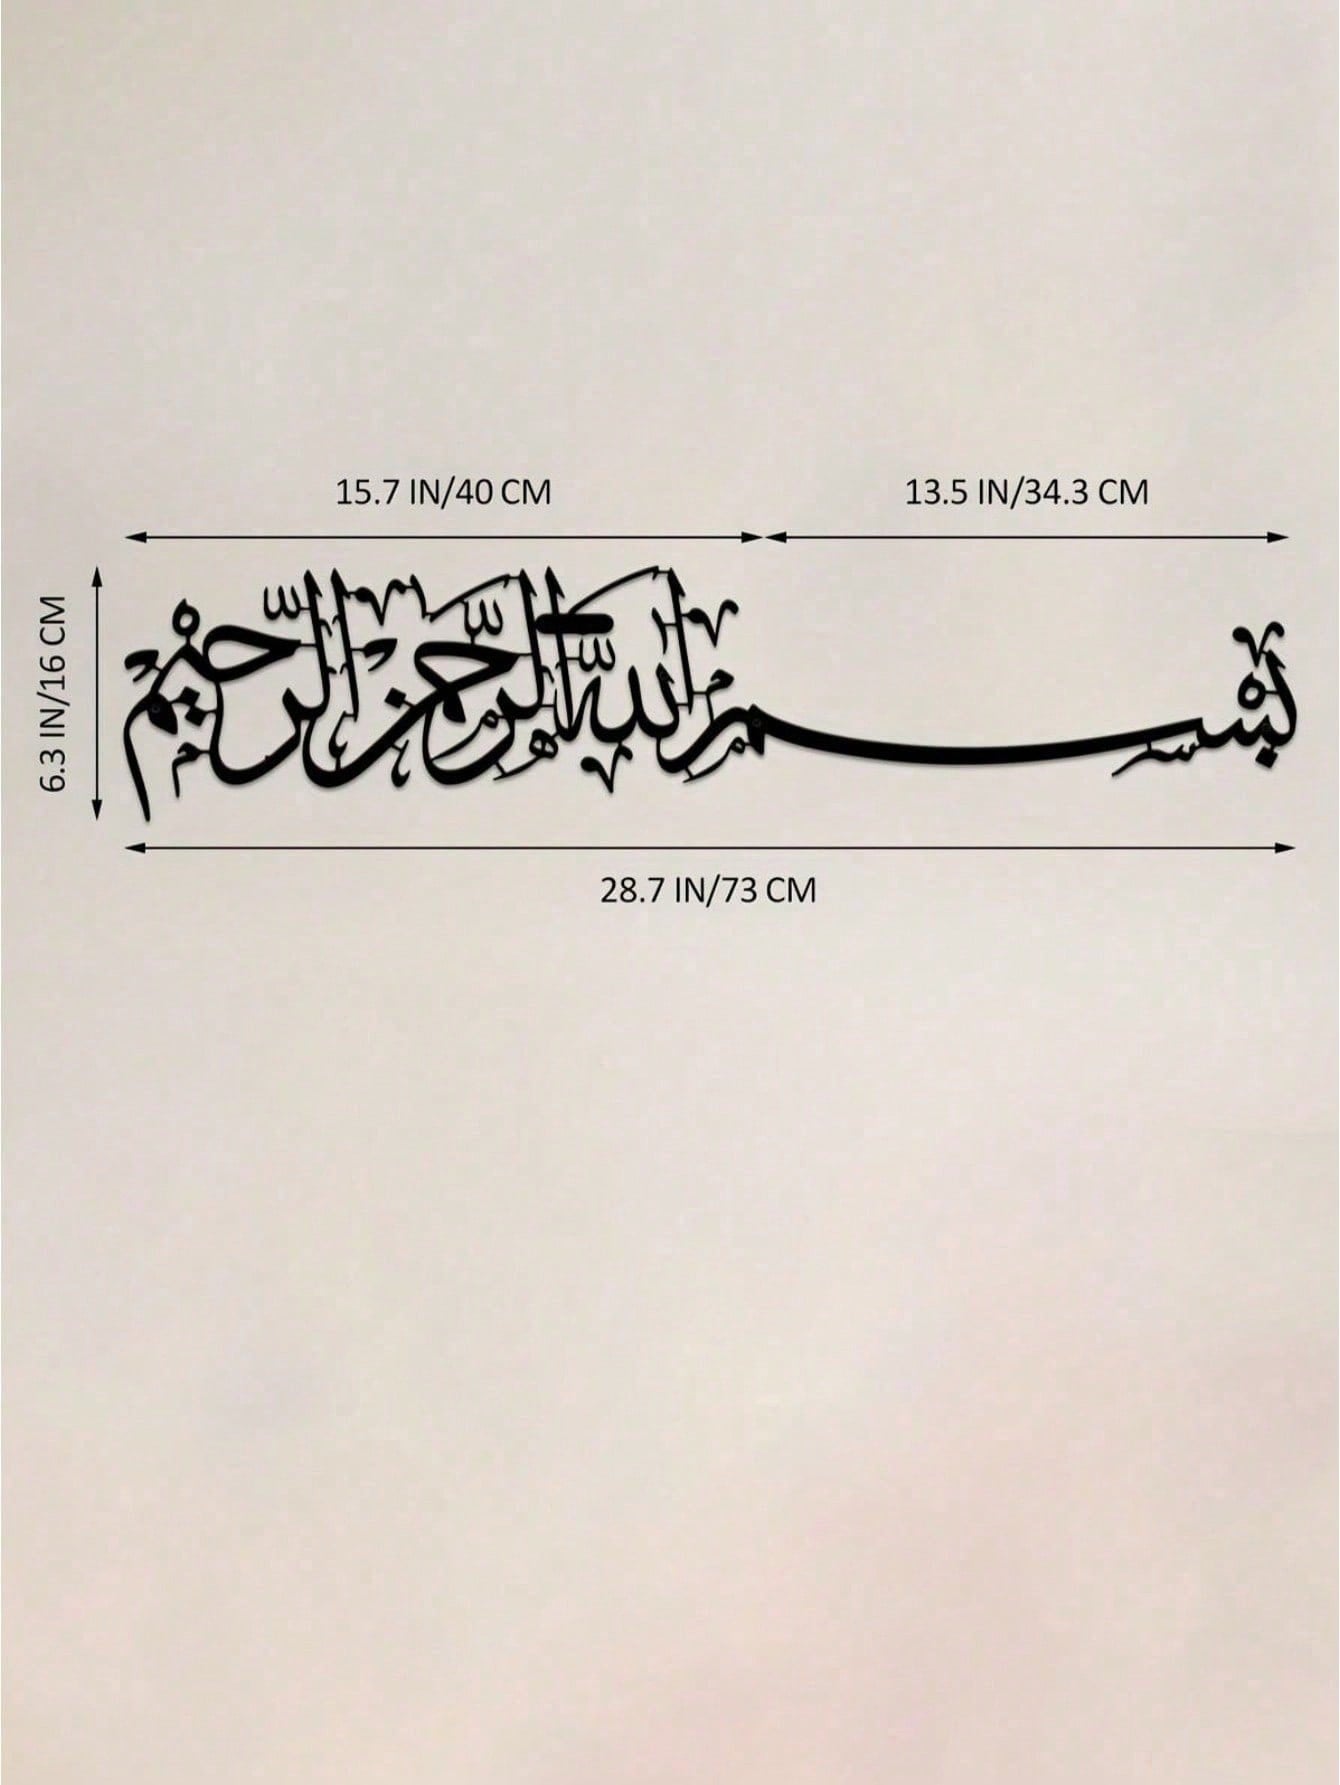 15.7 IN/40 CM
13.5 IN/34.3 CM
6.3 IN/16 CM
بسم الله الرحمن الرحيم
28.7 IN/73 CM